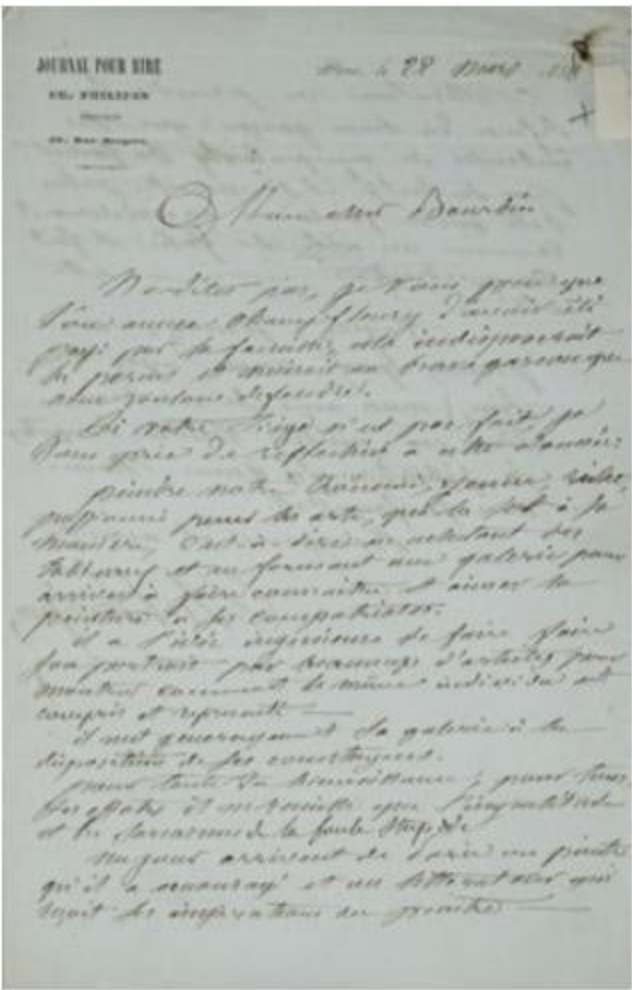 JOURNAL POUR RIRE
CH. PHILIPON
le 28 Mars
Mon cher Bourdin
N'oubliez pas, je vous prie que
l'on accuse Champfleury d'avoir été
payé par la famille, cela indisposerait
le public et nuirait au brave garçon que
nous voulons défendre.
Si votre n'est pas fait, je
vous prie de réfléchir à cette donnée:
peindre notre jeune, riche,
passionné pour les arts, qui les sert à sa
manière, c'est-à-dire en achetant des
tableaux et en formant une galerie pour
arriver à faire connaître et aimer la
peinture à ses compatriotes.
il a l'idée ingénieuse de faire faire
son portrait par beaucoup d'artistes pour
montrer comment le même individu est
compris et représenté
il met généreusement sa galerie à la
disposition de ses concitoyens.
pour toute reconnaissance, pour tous
ses efforts il ne recueille que l'ingratitude
et les sarcasmes de la foule stupide
un jour arrivent de Paris un peintre
qu'il a encouragé et un littérateur qui
reçoit les inspirations du peintre